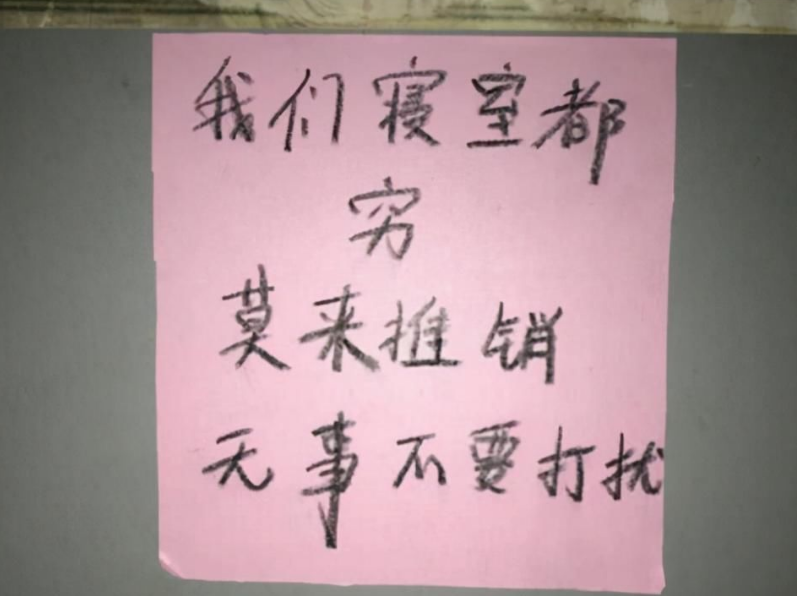 我们寝室都
穷
莫来推销
无事不要打扰